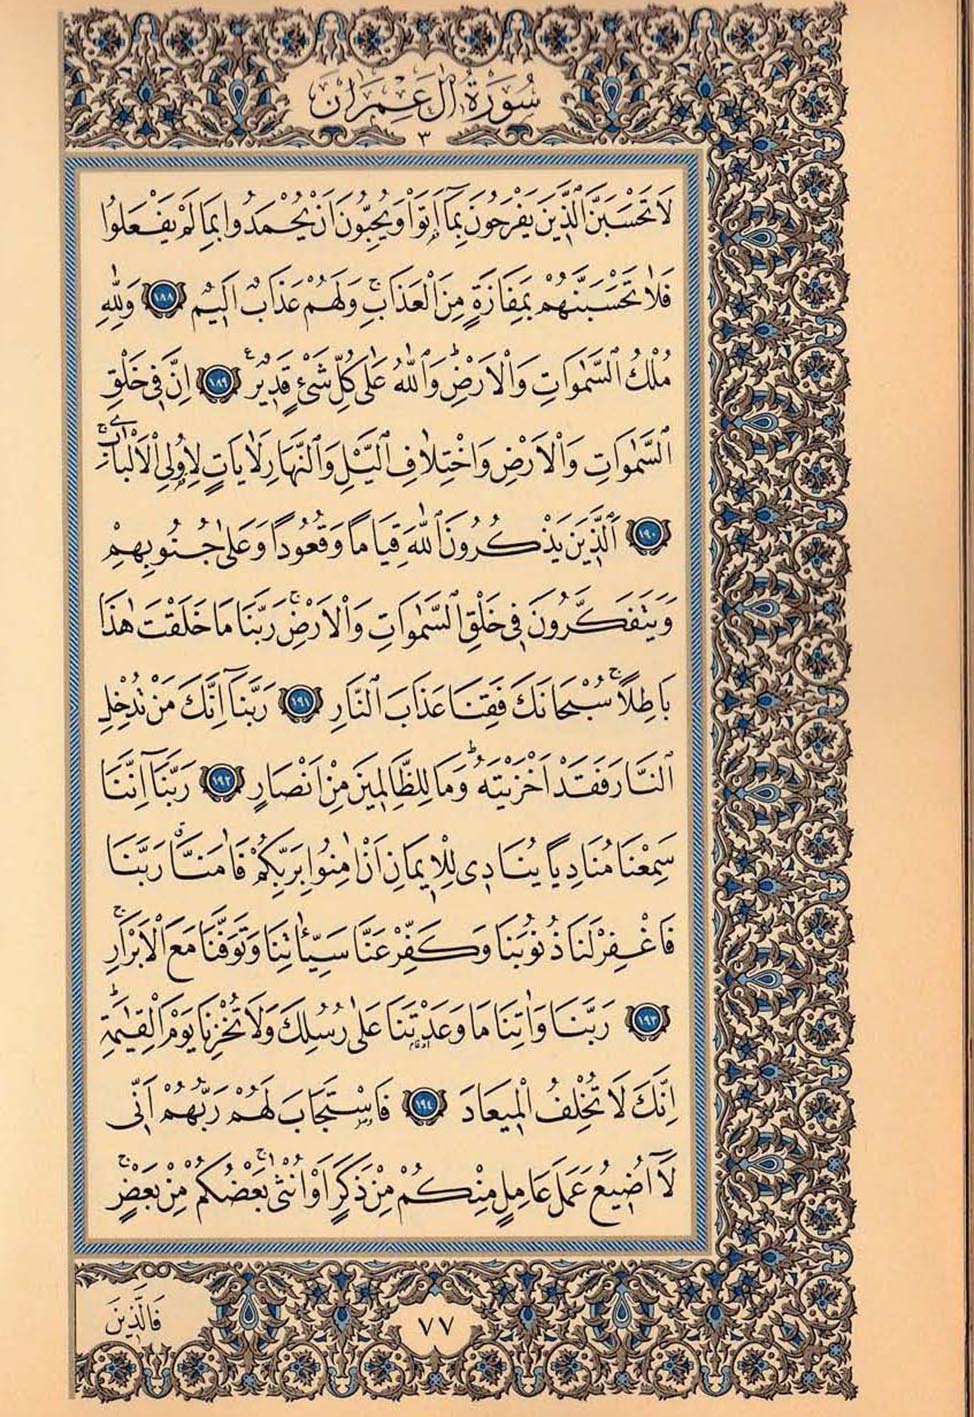 سُورَةُ اٰلِ عِمْرَانَ
٣
لَا تَحْسَبَنَّ الَّذ۪ينَ يَفْرَحُونَ بِمَٓا اَتَوْا وَيُحِبُّونَ اَنْ يُحْمَدُوا بِمَا لَمْ يَفْعَلُوا
فَلَا تَحْسَبَنَّهُمْ بِمَفَازَةٍ مِنَ الْعَذَابِۚ وَلَهُمْ عَذَابٌ اَل۪يمٌ ﴿١٨٨﴾ وَلِلّٰهِ
مُلْكُ السَّمٰوَاتِ وَالْاَرْضِۜ وَاللّٰهُ عَلٰى كُلِّ شَيْءٍ قَد۪يرٌ۟ ﴿١٨٩﴾ اِنَّ ف۪ي خَلْقِ
السَّمٰوَاتِ وَالْاَرْضِ وَاخْتِلَافِ الَّيْلِ وَالنَّهَارِ لَاٰيَاتٍ لِاُو۬لِي الْاَلْبَابِۚ
﴿١٩٠﴾ اَلَّذ۪ينَ يَذْكُرُونَ اللّٰهَ قِيَامًا وَقُعُودًا وَعَلٰى جُنُوبِهِمْ
وَيَتَفَكَّرُونَ ف۪ي خَلْقِ السَّمٰوَاتِ وَالْاَرْضِۚ رَبَّنَا مَا خَلَقْتَ هٰذَا
بَاطِلًاۚ سُبْحَانَكَ فَقِنَا عَذَابَ النَّارِ ﴿١٩١﴾ رَبَّنَٓا اِنَّكَ مَنْ تُدْخِلِ
النَّارَ فَقَدْ اَخْزَيْتَهُۜ وَمَا لِلظَّالِم۪ينَ مِنْ اَنْصَارٍ ﴿١٩٢﴾ رَبَّنَٓا اِنَّنَا
سَمِعْنَا مُنَادِيًا يُنَاد۪ي لِلْا۪يمَانِ اَنْ اٰمِنُوا بِرَبِّكُمْ فَاٰمَنَّاۗ رَبَّنَا
فَاغْفِرْ لَنَا ذُنُوبَنَا وَكَفِّرْ عَنَّا سَيِّـَٔاتِنَا وَتَوَفَّنَا مَعَ الْاَبْرَارِۚ
﴿١٩٣﴾ رَبَّنَا وَاٰتِنَا مَا وَعَدْتَنَا عَلٰى رُسُلِكَ وَلَا تُخْزِنَا يَوْمَ الْقِيٰمَةِۜ
اِنَّكَ لَا تُخْلِفُ الْم۪يعَادَ ﴿١٩٤﴾ فَاسْتَجَابَ لَهُمْ رَبُّهُمْ اَنّ۪ي
لَٓا اُض۪يعُ عَمَلَ عَامِلٍ مِنْكُمْ مِنْ ذَكَرٍ اَوْ اُنْثٰىۚ بَعْضُكُمْ مِنْ بَعْضٍۚ
فَالَّذ۪ينَ
٧٧